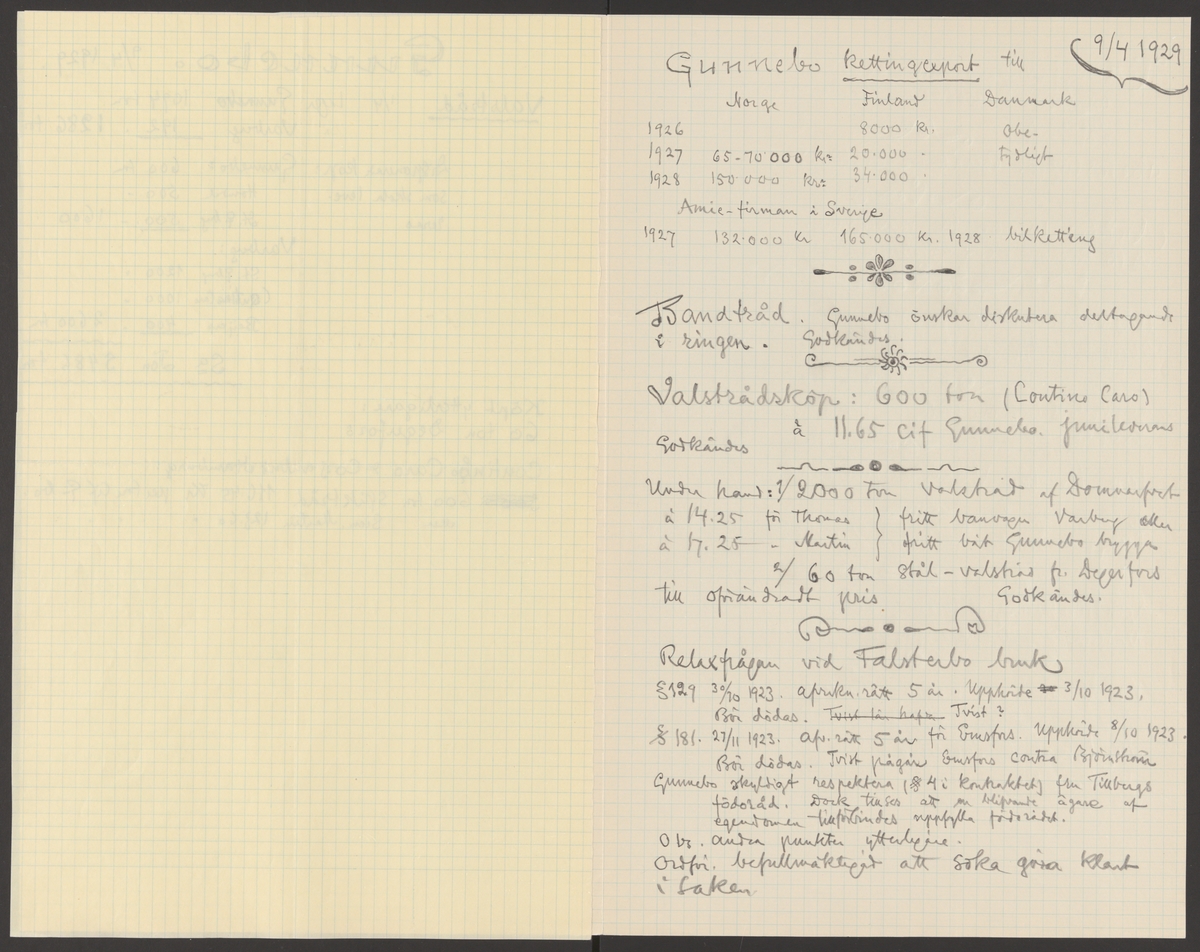 9/4 1929
Gunnebo kettingexport till
Norge Finland Danmark
1926 8000 kr. Obe-
1927 65-70.000 kr 20.000 . tydligt
1928 150.000 kr 34.000 .
Amie-firman i Sverige
1927 132.000 kr 165.000 kr. 1928 bilkett'eng
Bandtråd. Gunnebo önskar diskutera deltagande
i ringen. Godkändes.
Valstrådsköp: 600 ton (Contino Caro)
à 11.65 cif Gunnebo. junileverans
Godkändes
Under hand: 1/ 2000 ton valstråd af Domnarfvet
à 14.25 för Thomas } fritt banvagn Varberg eller
à 17.25 - Martin } fritt båt Gunnebo brygga
2/ 60 ton stål-valstråd fr. Degerfors
till oförändradt pris. Godkändes.
Relaxfrågan vid Falsterbo bruk
§129 30/10 1923. aprikn. rätt 5 år. Upphörde 3/10 1923.
Bör dödas. Tvist lär hafva Tvist?
§ 181. 27/11 1923. ap. rätt 5 år för Emsfors. Upphörde 8/10 1923.
Bör dödas. Tvist pågår Emsfors contra Björnström
Gunnebo skyldigt respektera (§ 4 i kontraktet) fru Tillbergs
födoråd. Dock tillses att ev blifvande ägare af
egendomen tillförbindes uppfylla födorådet.
Obs. andra punkter ytterligare.
Ordför. befullmäktigad att söka göra klart
i saken